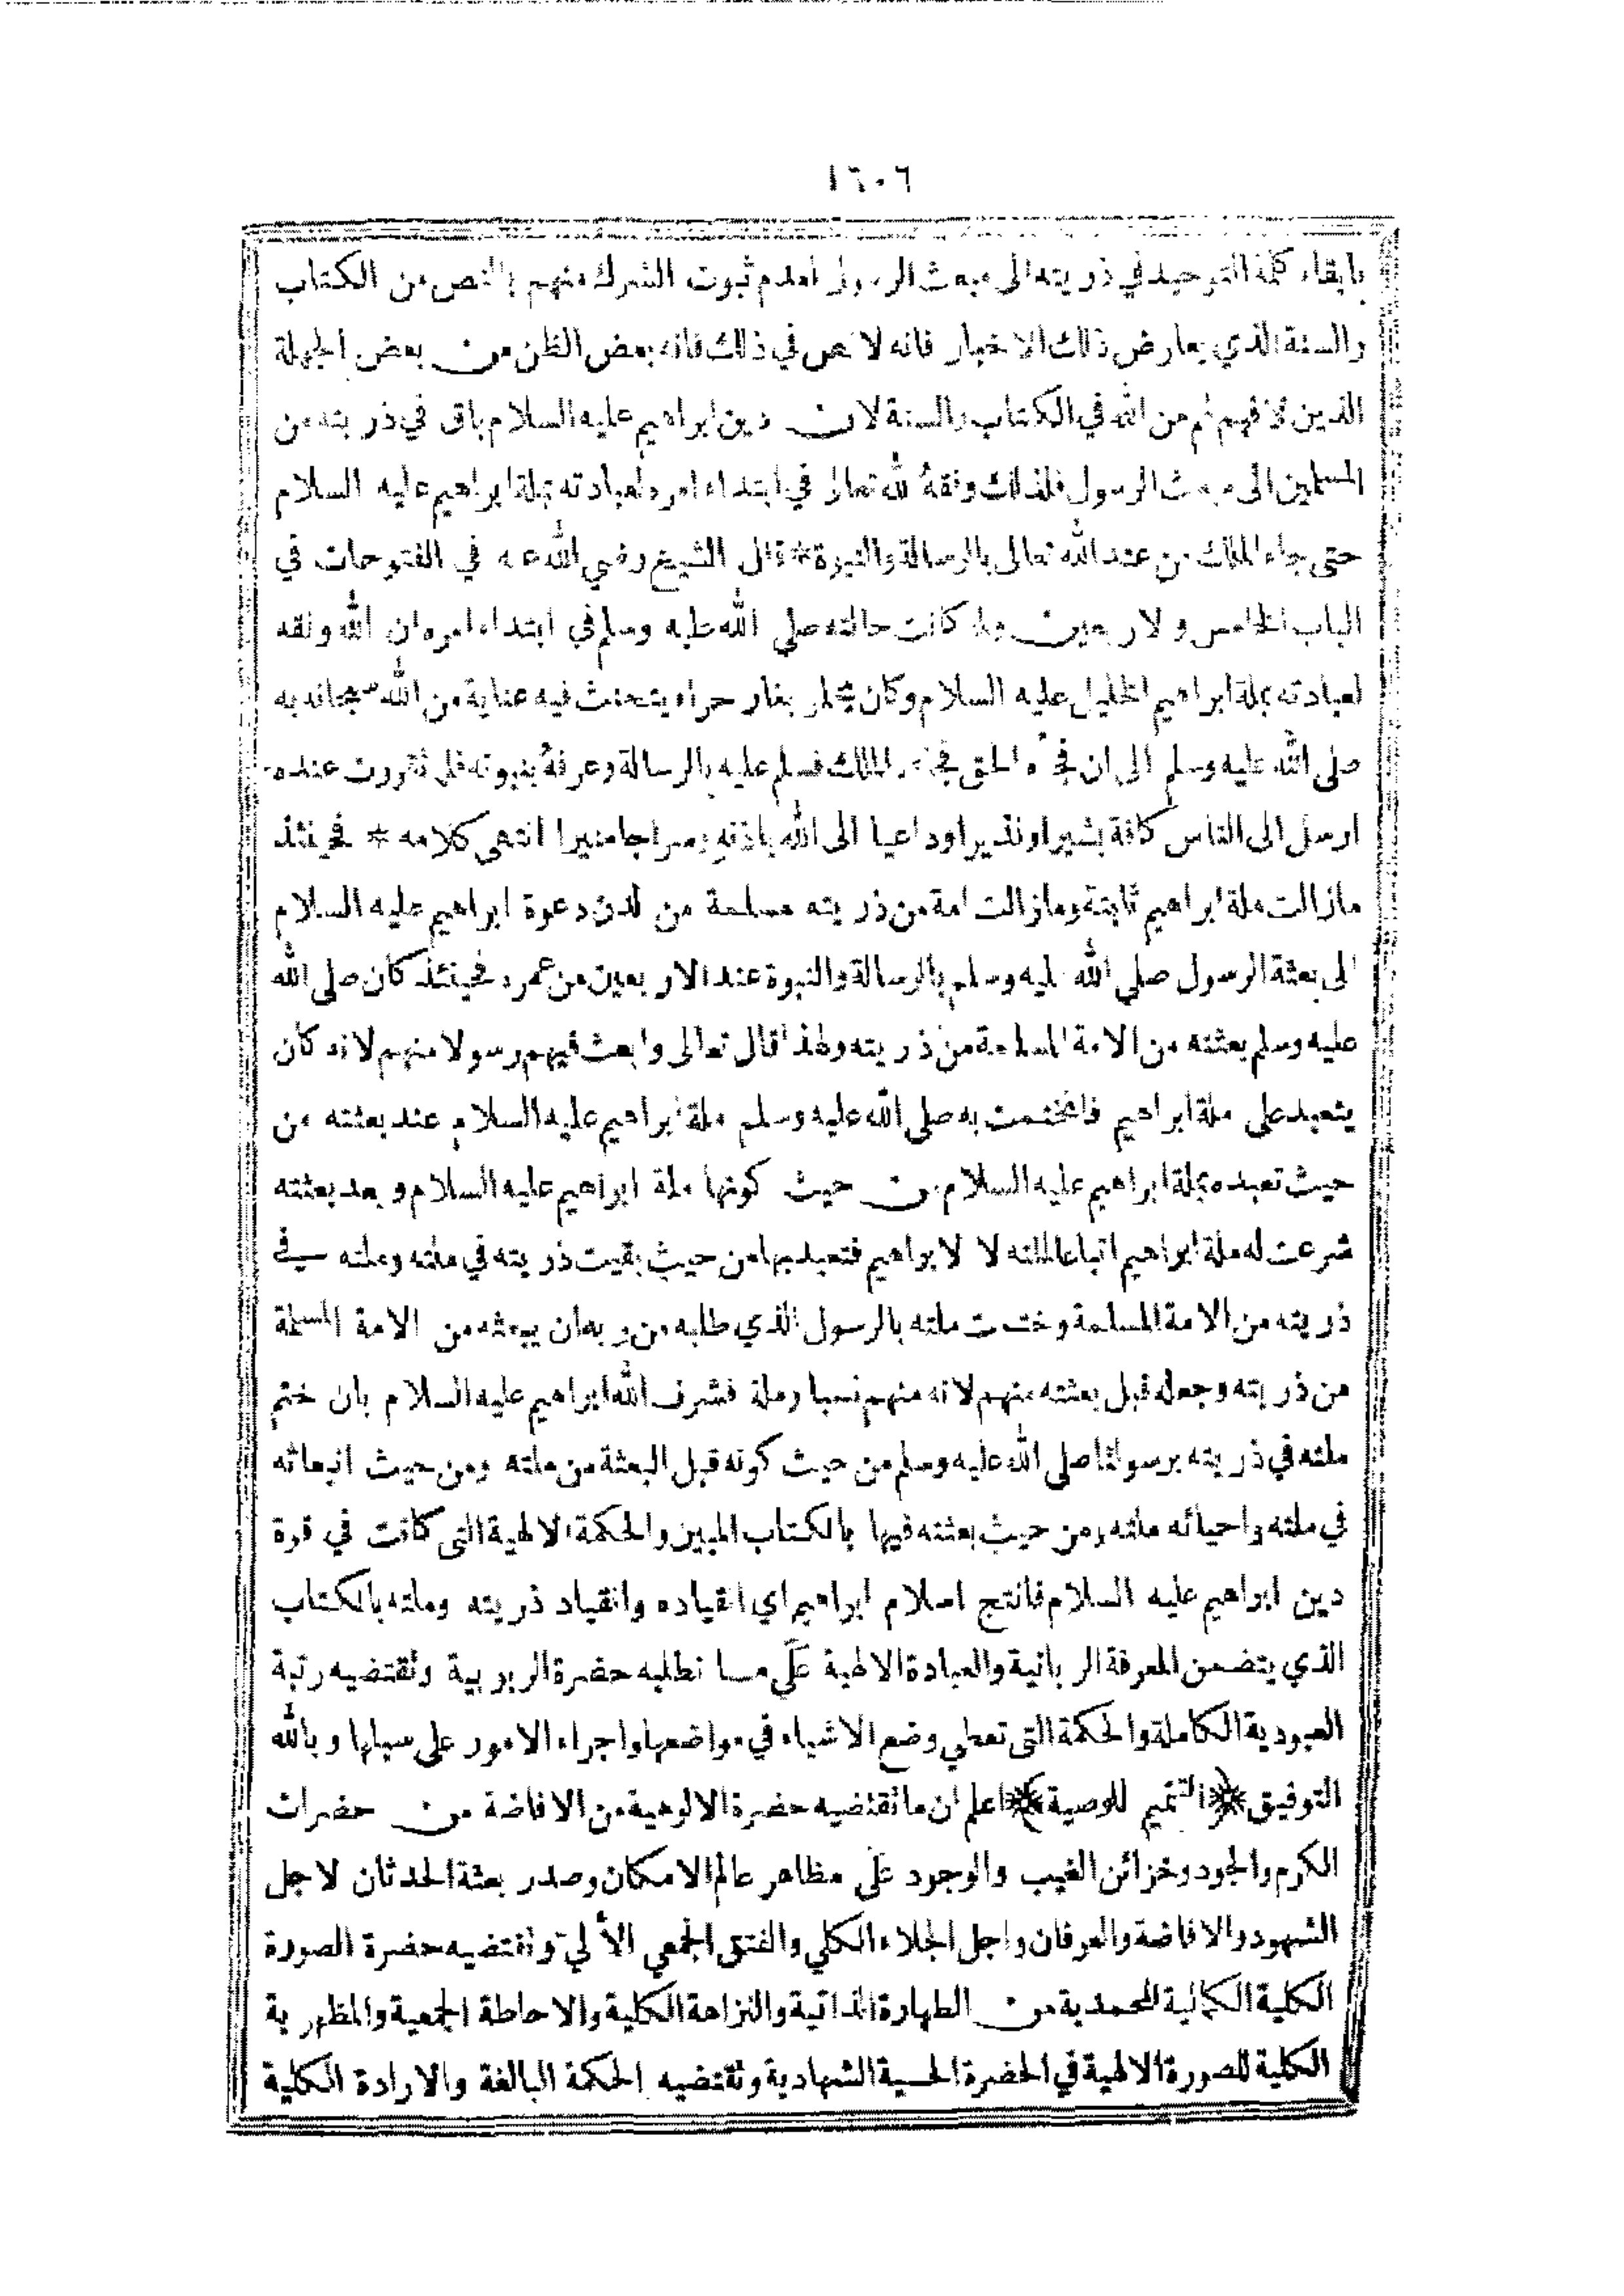 ١٦٠٦
بابقاء كلمة التوحيد في ذريته الى مبعث الرسول لعدم ثبوت الشرك منهم بالنص من الكتاب
والسنة الذي يعارض ذلك الاخبار فانه لا نص في ذلك فانه بعض الظن من بعض الجهلة
الذين لا فهم لهم من الله في الكتاب والسنة لان دين ابراهيم عليه السلام باق في ذريته من
المسلمين الى مبعث الرسول فلذلك وفقهُ الله تعالى في ابتداء امره لعبادته بملة ابراهيم عليه السلام
حتى جاء الملك من عند الله تعالى بالرسالة والنبوة * قال الشيخ رضي الله عنه في الفتوحات في
الباب الخامس والاربعين ولما كانت حالته صلى الله عليه وسلم في ابتداء امره ان الله وفقه
لعبادته بملة ابراهيم الخليل عليه السلام وكان يخلو بغار حراء يتحنث فيه عناية من الله سبحانه به
صلى الله عليه وسلم الى ان فجأه الحق فجاءه الملك فسلم عليه بالرسالة وعرفهُ بنبوته فلما تقررت عنده
ارسل الى الناس كافة بشيرا ونذيرا وداعيا الى الله باذنهِ وسراجا منيرا انتهى كلامه * فحينئذ
مازالت ملة ابراهيم ثابتة ومازالت امة من ذريته مسلمة من لدن دعوة ابراهيم عليه السلام
الى بعثة الرسول صلى الله عليه وسلم بالرسالة والنبوة عند الاربعين من عمره فحينئذ كان صلى الله
عليه وسلم بعثته من الامة المسلمة من ذريته ولهذا قال تعالى وابعث فيهم رسولا منهم لانه كان
يتعبد على ملة ابراهيم فاختتمت به صلى الله عليه وسلم ملة ابراهيم عليه السلام عند بعثته من
حيث تعبده بملة ابراهيم عليه السلام من حيث كونها ملة ابراهيم عليه السلام وبعد بعثته
شرعت له ملة ابراهيم اتباعا لملته لا لابراهيم فتعبد بها من حيث بقيت ذريته في ملته وملته في
ذريته من الامة المسلمة وختمت ملته بالرسول الذي طلبه من ربه ان يبعثه من الامة المسلمة
من ذريته وجعله قبل بعثته منهم لانه منهم نسبا وملة فشرف الله ابراهيم عليه السلام بان ختم
ملته في ذريته برسولنا صلى الله عليه وسلم من حيث كونه قبل البعثة من ملته ومن حيث انبعاثه
في ملته واحيائه ملته ومن حيث بعثته فيها بالكتاب المبين والحكمة الالهية التى كانت في قوة
دين ابراهيم عليه السلام فانتج اسلام ابراهيم اي انقياده وانقياد ذريته وملته بالكتاب
الذي يتضمن المعرفة الربانية والعبادة الالهية على ما تطلبه حضرة الربوبية وتقتضيه رتبة
العبودية الكاملة والحكمة التى تعطي وضع الاشياء في مواضعها واجراء الامور على سبلها وبالله
التوفيق ﴿التتميم للوصية﴾ اعلم ان ما تقتضيه حضرة الالوهية من الافاضة من حضرات
الكرم والجود وخزائن الغيب والوجود على مظاهر عالم الامكان وصدر بعثة الحدثان لاجل
الشهود والافاضة والعرفان واجل الجلاء الكلي والفتق الجمعي وتقتضيه حضرة الصورة
الكلية الكمالية المحمدية من الطهارة الذاتية والنزاهة الكلية والاحاطة الجمعية والمظهرية
الكلية للصورة الالهية في الحضرة الحسية الشهادية وتقتضيه الحكمة البالغة والارادة الكلية